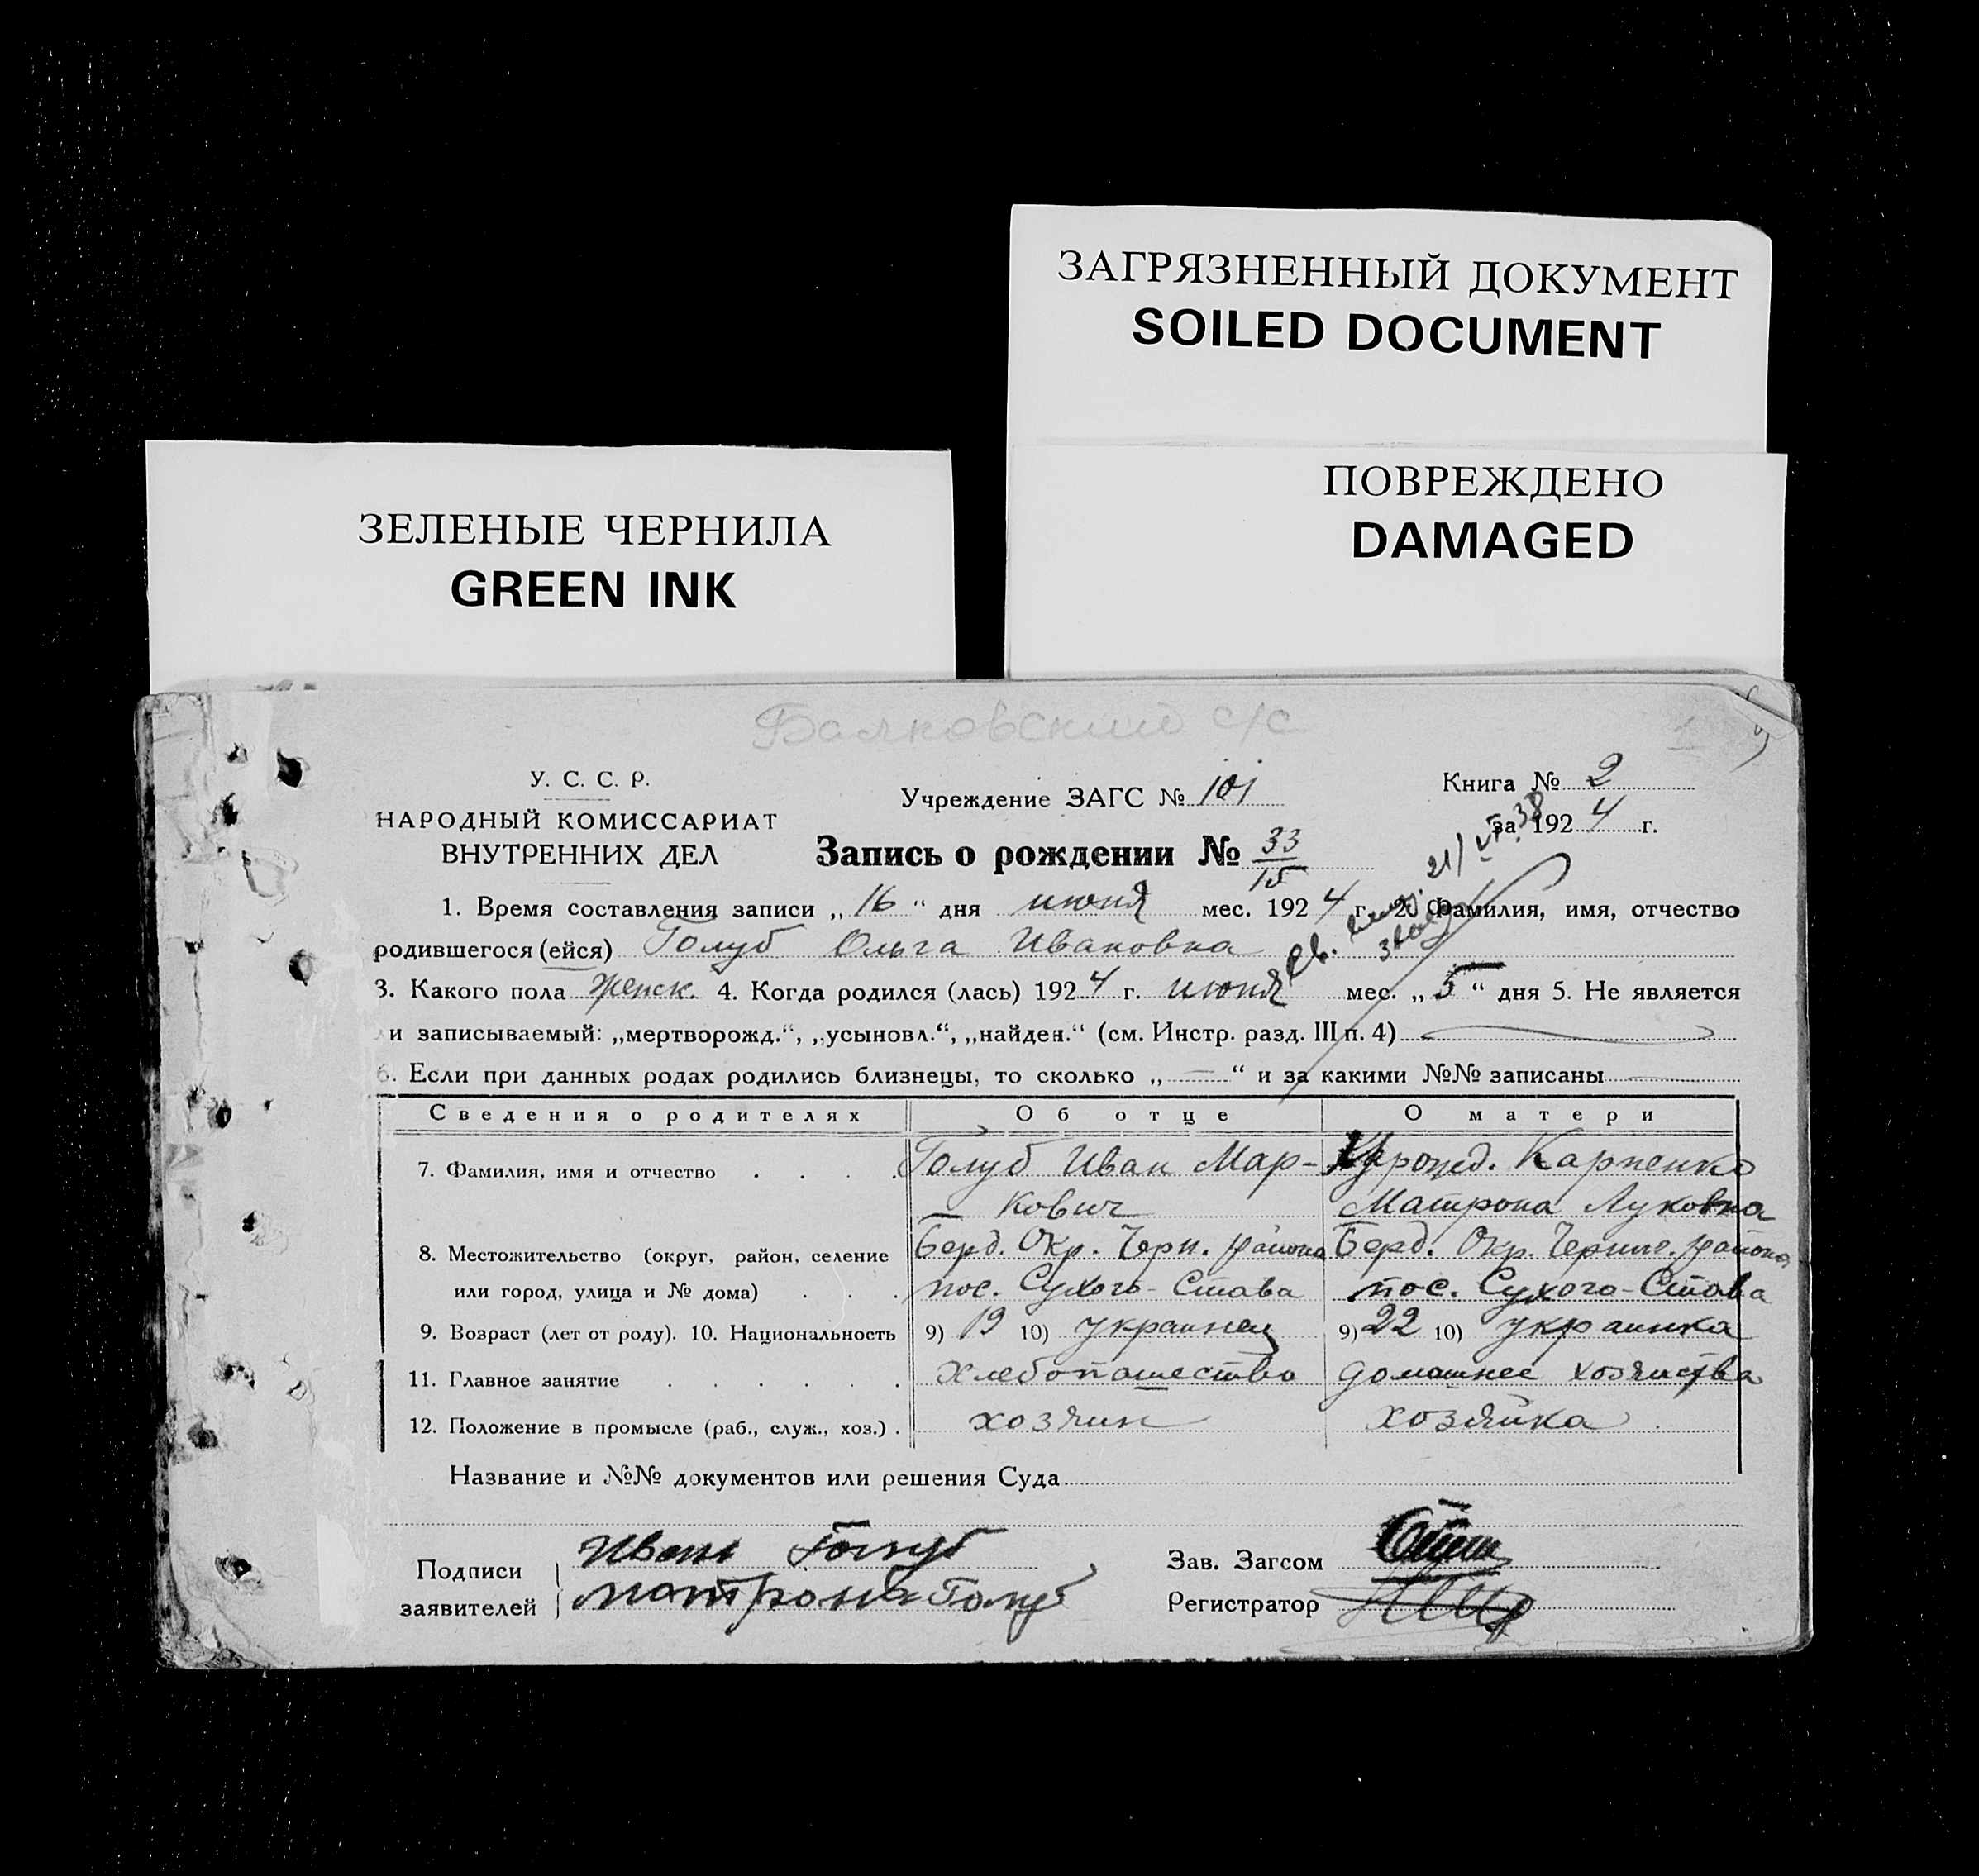 ЗАГРЯЗНЕННЫЙ ДОКУМЕНТ
SOILED DOCUMENT
ПОВРЕЖДЕНО
DAMAGED
ЗЕЛЕНЫЕ ЧЕРНИЛА
GREEN INK
Балковский с/с
У. С. С. Р.
НАРОДНЫЙ КОМИССАРИАТ
ВНУТРЕННИХ ДЕЛ
Учреждение ЗАГС № 101
Книга № 2
за 1924 г.
Запись о рождении № 33/15
21/VI 38
1. Время составления записи „16“ дня июня мес. 1924 г. 2. Фамилия, имя, отчество
родившегося (ейся) Голуб Ольга Ивановна
3. Какого пола женск. 4. Когда родился (лась) 1924 г. июня мес. „5“ дня 5. Не является
и записываемый: „мертворожд.“, „усыновл.“, „найден.“ (см. Инстр. разд. III п. 4)
6. Если при данных родах родились близнецы, то сколько „—“ и за какими №№ записаны
Сведения о родителях Об отце О матери
7. Фамилия, имя и отчество Голуб Иван Мар-
кович
урожд. Карпенко
Матрона Луковна
8. Местожительство (округ, район, селение
или город, улица и № дома)
Берд. Окр. Черн. района
пос. Сухого-Става
Берд. Окр. Черниг. района
пос. Сухого-Става
9. Возраст (лет от роду). 10. Национальность 9) 19 10) украинец 9) 22 10) украинка
11. Главное занятие хлебопашество домашнее хозяиства
12. Положение в промысле (раб., служ., хоз.) хозяин хозяйка
Название и №№ документов или решения Суда
Подписи
заявителей
Иван Голуб
Матрона Голуб
Зав. Загсом
Регистратор